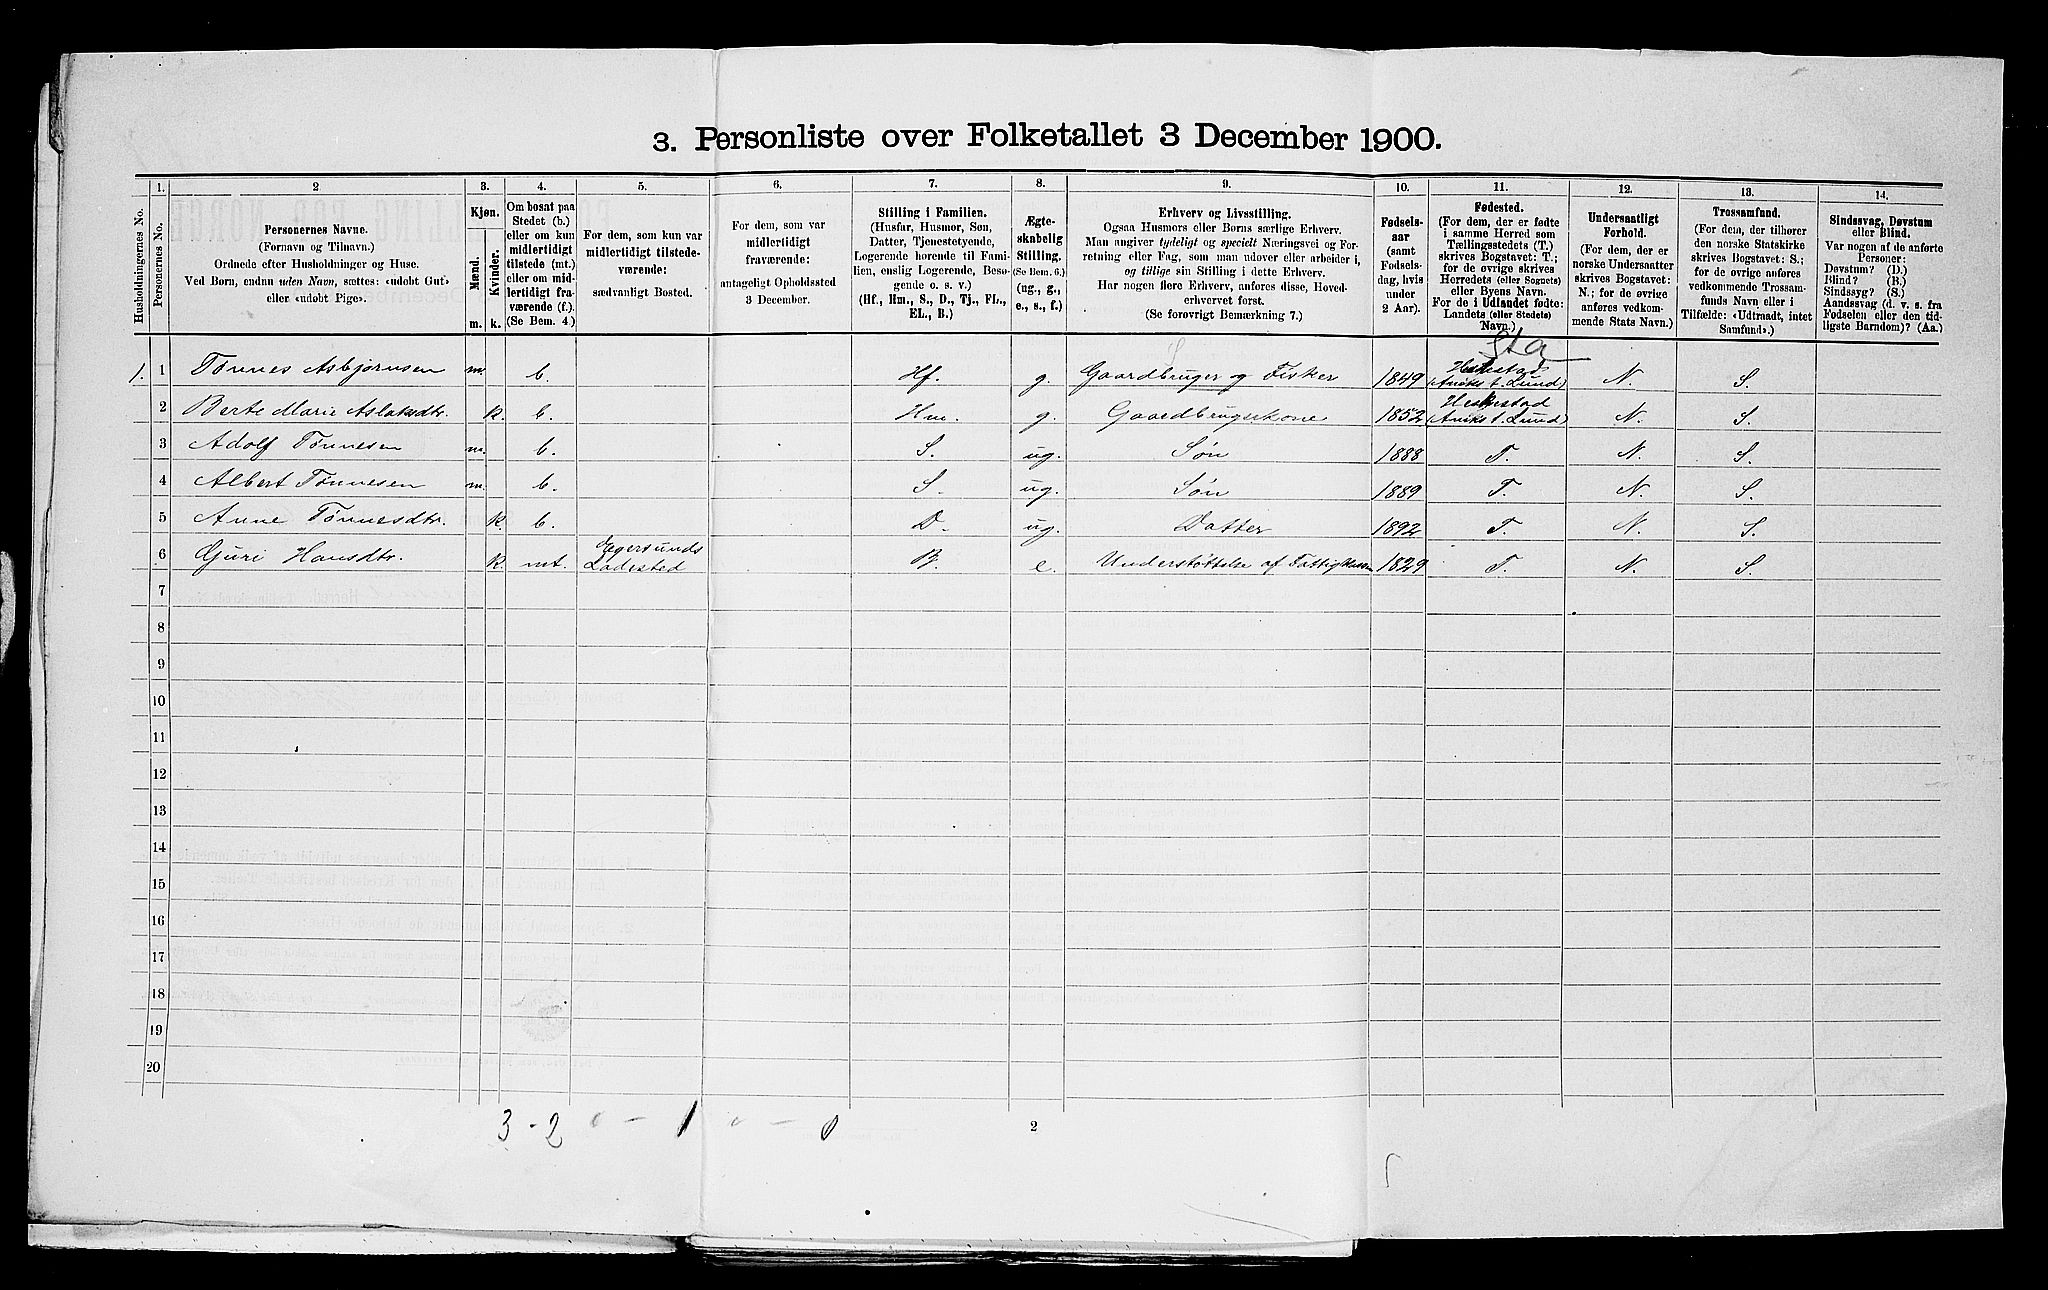 3. Personliste over Folketallet 3 December 1900.
1. 2. 3. 4. 5. 6. 7. 8. 9. 10. 11. 12. 13. 14.
Husholdningernes No.
Personernes No.
Personernes Navne.
(Fornavn og Tilnavn.)
Ordnede efter Husholdninger og Huse.
Ved Børn, endnu uden Navn, sættes: «udøbt Gut»
eller «udøbt Pige».
Kjøn.
Mænd.
Kvinder.
m. k.
Om bosat paa
Stedet (b.)
eller om kun
midlertidigt
tilstede (mt.)
eller om mid-
lertidigt fra-
værende (f.)
(Se Bem. 4.)
For dem, som kun var
midlertidigt tilstede-
værende:
sædvanligt Bosted.
For dem, som var
midlertidigt
fraværende:
antageligt Opholdssted
3 December.
Stilling i Familien.
(Husfar, Husmor, Søn,
Datter, Tjenestetyende,
Logerende hørende til Fami-
lien, enslig Logerende, Besø-
gende o. s. v.)
(Hf., Hm., S., D., Tj., FL.,
EL., B.)
Ægte-
skabelig
Stilling.
(Se Bem. 6.)
(ug., g.,
e., s., f.)
Erhverv og Livsstilling.
Ogsaa Husmors eller Børns særlige Erhverv.
Man angiver tydeligt og specielt Næringsvei og For-
retning eller Fag, som man udøver eller arbeider i,
og tillige sin Stilling i dette Erhverv.
Har nogen flere Erhverv, anføres disse, Hoved-
erhvervet først.
(Se forøvrigt Bemærkning 7.)
Fødsels-
aar
(samt
Fødsels-
dag, hvis
under
2 Aar).
Fødested.
(For dem, der er fødte
i samme Herred som
Tællingsstedets (T.)
skrives Bogstavet: T.;
for de øvrige skrives
Herredets (eller Sognets)
eller Byens Navn.
For de i Udlandet fødte:
Landets (eller Stedets)
Navn.)
Undersaatligt
Forhold.
(For dem, der er
norske Undersaatter
skrives Bogstavet:
N.; for de øvrige
anføres vedkom-
mende Stats Navn.)
Trossamfund.
(For dem, der tilhører
den norske Statskirke
skrives Bogstavet: S.;
for de øvrige anføres
vedkommende Trossam-
funds Navn eller i
Tilfælde: «Udtraadt, intet
Samfund».)
Sindssvag, Døvstum
eller Blind.
Var nogen af de anførte
Personer:
Døvstum? (D.)
Blind? (B.)
Sindssyg? (S.)
Aandssvag (d. v. s. fra
Fødselen eller den tid-
ligste Barndom)? (Aa.)
1. 1 Tønnes Asbjørnsen m. b. Hf. g. Gaardbruger og Fisker 1849 Heskestad (Aniks t. Lund) N. S.
2 Berte Marie Aslaksdtr. k. b. Hm. g. Gaardbrugerkone 1852 Heskestad (Aniks t. Lund) N. S.
3 Adolf Tønnesen m. b. S. ug. Søn 1888 T. N. S.
4 Albert Tønnesen m. b. S. ug. Søn 1889 T. N. S.
5 Anne Tønnesdtr. k. b. D. ug. Datter 1892 T. N. S.
6 Guri Hansdtr. k. mt. Egersunds Ladested B. e. Understøttelse af Fattigkassen 1829 T. N. S.
7
8
9
10
11
12
13
14
15
16
17
18
19
20
3 - 2 0 - 1 0 - 0
2